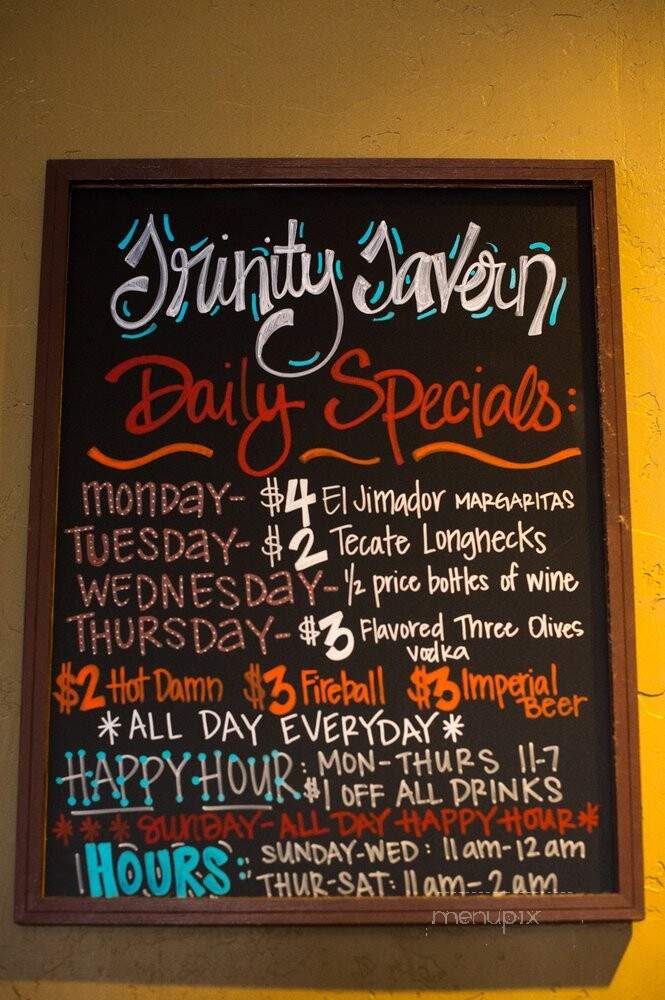 Trinity Tavern
Daily Specials:
MONDAY- $4 El Jimador MARGARITAS
TUESDAY- $2 Tecate Longnecks
WEDNESDAY- 1/2 price bottles of wine
THURSDAY- $3 Flavored Three Olives
vodka
$2 Hot Damn $3 Fireball $3 Imperial
Beer
*ALL DAY EVERYDAY*
HAPPY HOUR: MON-THURS 11-7
$1 OFF ALL DRINKS
*** SUNDAY-ALL DAY HAPPY HOUR*
HOURS: SUNDAY-WED: 11am-12am
THUR-SAT: 11am-2am
menupix